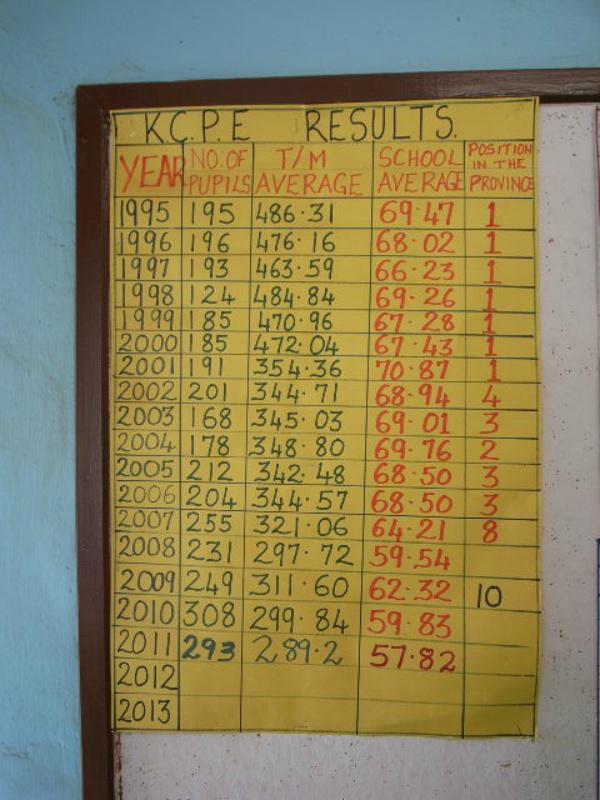 K.C.P.E RESULTS.
YEAR NO: OF PUPILS T/M AVERAGE SCHOOL AVERAGE POSITION IN THE PROVINCE
1995 195 486.31 69.47 1
1996 196 476.16 68.02 1
1997 193 463.59 66.23 1
1998 124 484.84 69.26 1
1999 185 470.96 67.28 1
2000 185 472.04 67.43 1
2001 191 354.36 70.87 1
2002 201 344.71 68.94 4
2003 168 345.03 69.01 3
2004 178 348.80 69.76 2
2005 212 342.48 68.50 3
2006 204 344.57 68.50 3
2007 255 321.06 64.21 8
2008 231 297.72 59.54
2009 249 311.60 62.32 10
2010 308 299.84 59.83
2011 293 289.2 57.82
2012
2013